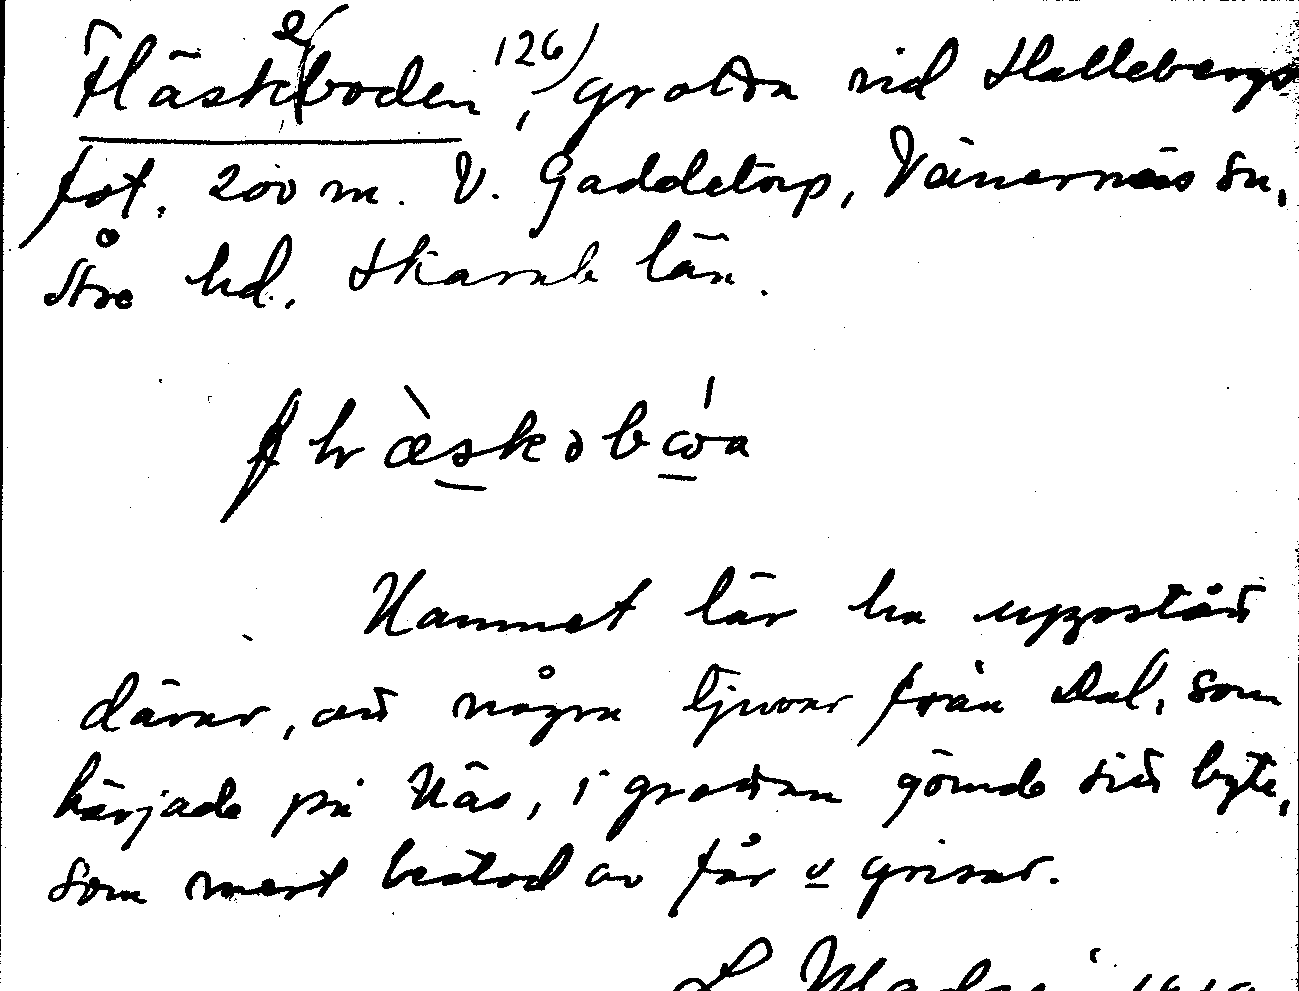 Fläskeboden 126), grotta vid Hallebergs
fot, 200 m. V. Gaddetorp, Vänernäs sn,
Åse hd. Skarab län.
Namnet lär ha uppstått
därav, att några tjuvar från Dal, som
härjade på Näs, i grottan gömde sitt byte,
som mest bestod av får o grisar.